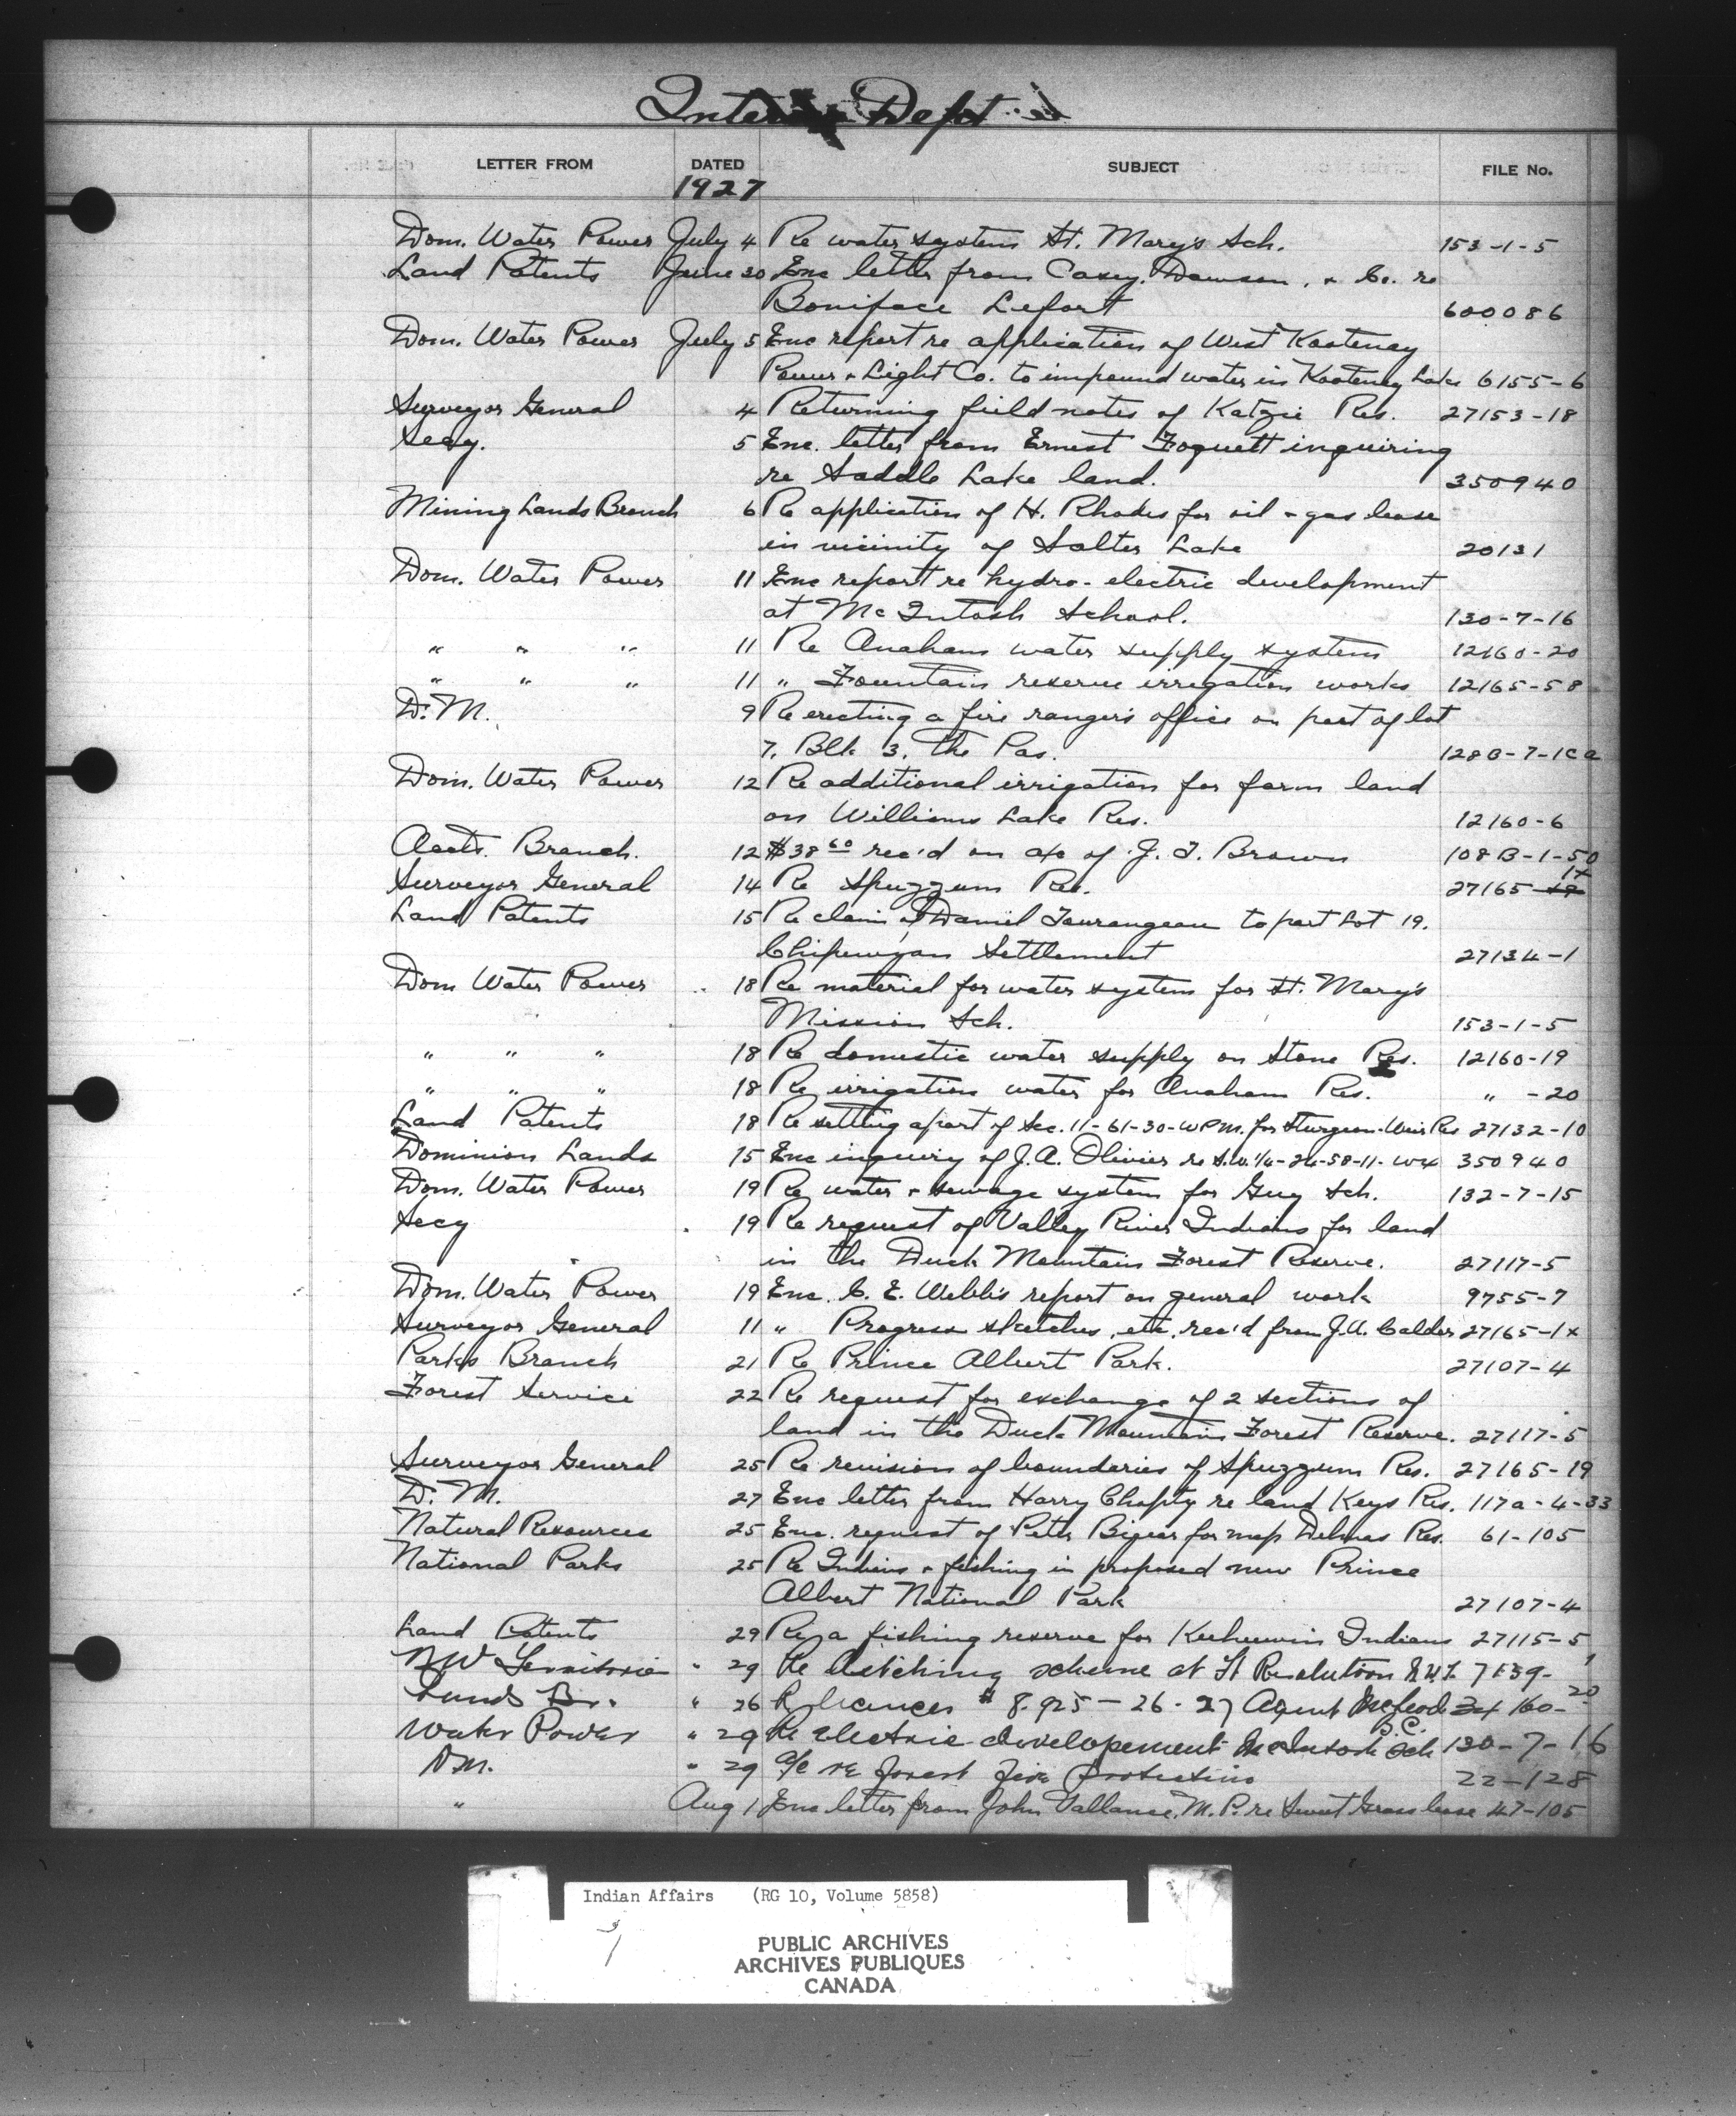 Interior Dept
LETTER FROM DATED SUBJECT FILE No.
1927
Dom. Water Power July 4 Re water system St. Mary's Sch. 153-1-5
Land Patents June 30 Enc letter from Casey, Dawson, & Co. re
Boniface Lefort 600086
Dom. Water Power July 5 Enc report re application of West Kootenay
Power & Light Co. to impound water in Kootenay Lake 6155-6
Surveyor General 4 Returning field notes of Katzie Res. 27153-18
Secy. 5 Enc. letter from Ernest Foquett inquiring
re Saddle Lake land. 350940
Mining Lands Branch 6 Re application of H. Rhodes for oil & gas lease
in vicinity of Salter Lake 20131
Dom. Water Power 11 Enc report re hydro-electric development
at McIntosh School. 130-7-16
" " " 11 Re Anaham water supply system 12160-20
" " " 11 " Fountain reserve irrigation works 12165-58
D.M. 9 Re erecting a fire ranger's office on part of lot
7. Blk 3. The Pas. 128B-7-1Ca
Dom. Water Power 12 Re additional irrigation for farm land
on Williams Lake Res. 12160-6
Accts. Branch. 12 $38 60 rec'd on a/c of J. T. Brown 108B-1-50
Surveyor General 14 Re Spuzzum Res. 27165-1x
Land Patents 15 Re claim of Daniel Tourangeau to part Lot 19.
Chipewyan Settlement 27134-1
Dom Water Power 18 Re material for water system for St. Mary's
Mission Sch. 153-1-5
" " " 18 Re domestic water supply on Stone Res. 12160-19
" " " 18 Re irrigation water for Anaham Res. " -20
Land Patents 18 Re setting apart of Sec. 11-61-30-WPM. for Sturgeon Weir Res 27132-10
Dominion Lands 15 Enc inquiry of J.A. Olivier re S.W.1/4-24-58-11-W4 350940
Dom. Water Power 19 Re water & sewage system for Guy Sch. 132-7-15
Secy 19 Re request of Valley River Indians for land
in the Duck Mountain Forest Reserve. 27117-5
Dom. Water Power 19 Enc. C. E. Webb's report on general work 9755-7
Surveyor General 11 " Progress sketches, etc. rec'd from J.A. Calder 27165-1x
Parks Branch 21 Re Prince Albert Park. 27107-4
Forest Service 22 Re request for exchange of 2 sections of
land in the Duck Mountain Forest Reserve. 27117-5
Surveyor General 25 Re revision of boundaries of Spuzzum Res. 27165-19
D.M. 27 Enc letter from Harry re land Keys Res. 117a-4-33
Natural Resources 25 Enc. request of Peter for map Delmas Res. 61-105
National Parks 25 Re Indians & fishing in proposed new Prince
Albert National Park 27107-4
Land Patents 29 Re a fishing reserve for Keeheewin Indians 27115-5
NW Territories " 29 Re scheme at Ft Resolution N.W.T.
Lands Br. " 26 $8.925 - 26-27 Agent McLeod 160-20
B.C.
Water Power " 29 Re electric developement McIntosh Sch 130-7-16
D.M. " 29 a/c re forest fire protection 22-128
" Aug 1 Enc letter from John Vallance, M.P. re Sweet Grass lease 47-105
Indian Affairs (RG 10, Volume 5858)
PUBLIC ARCHIVES
ARCHIVES PUBLIQUES
CANADA